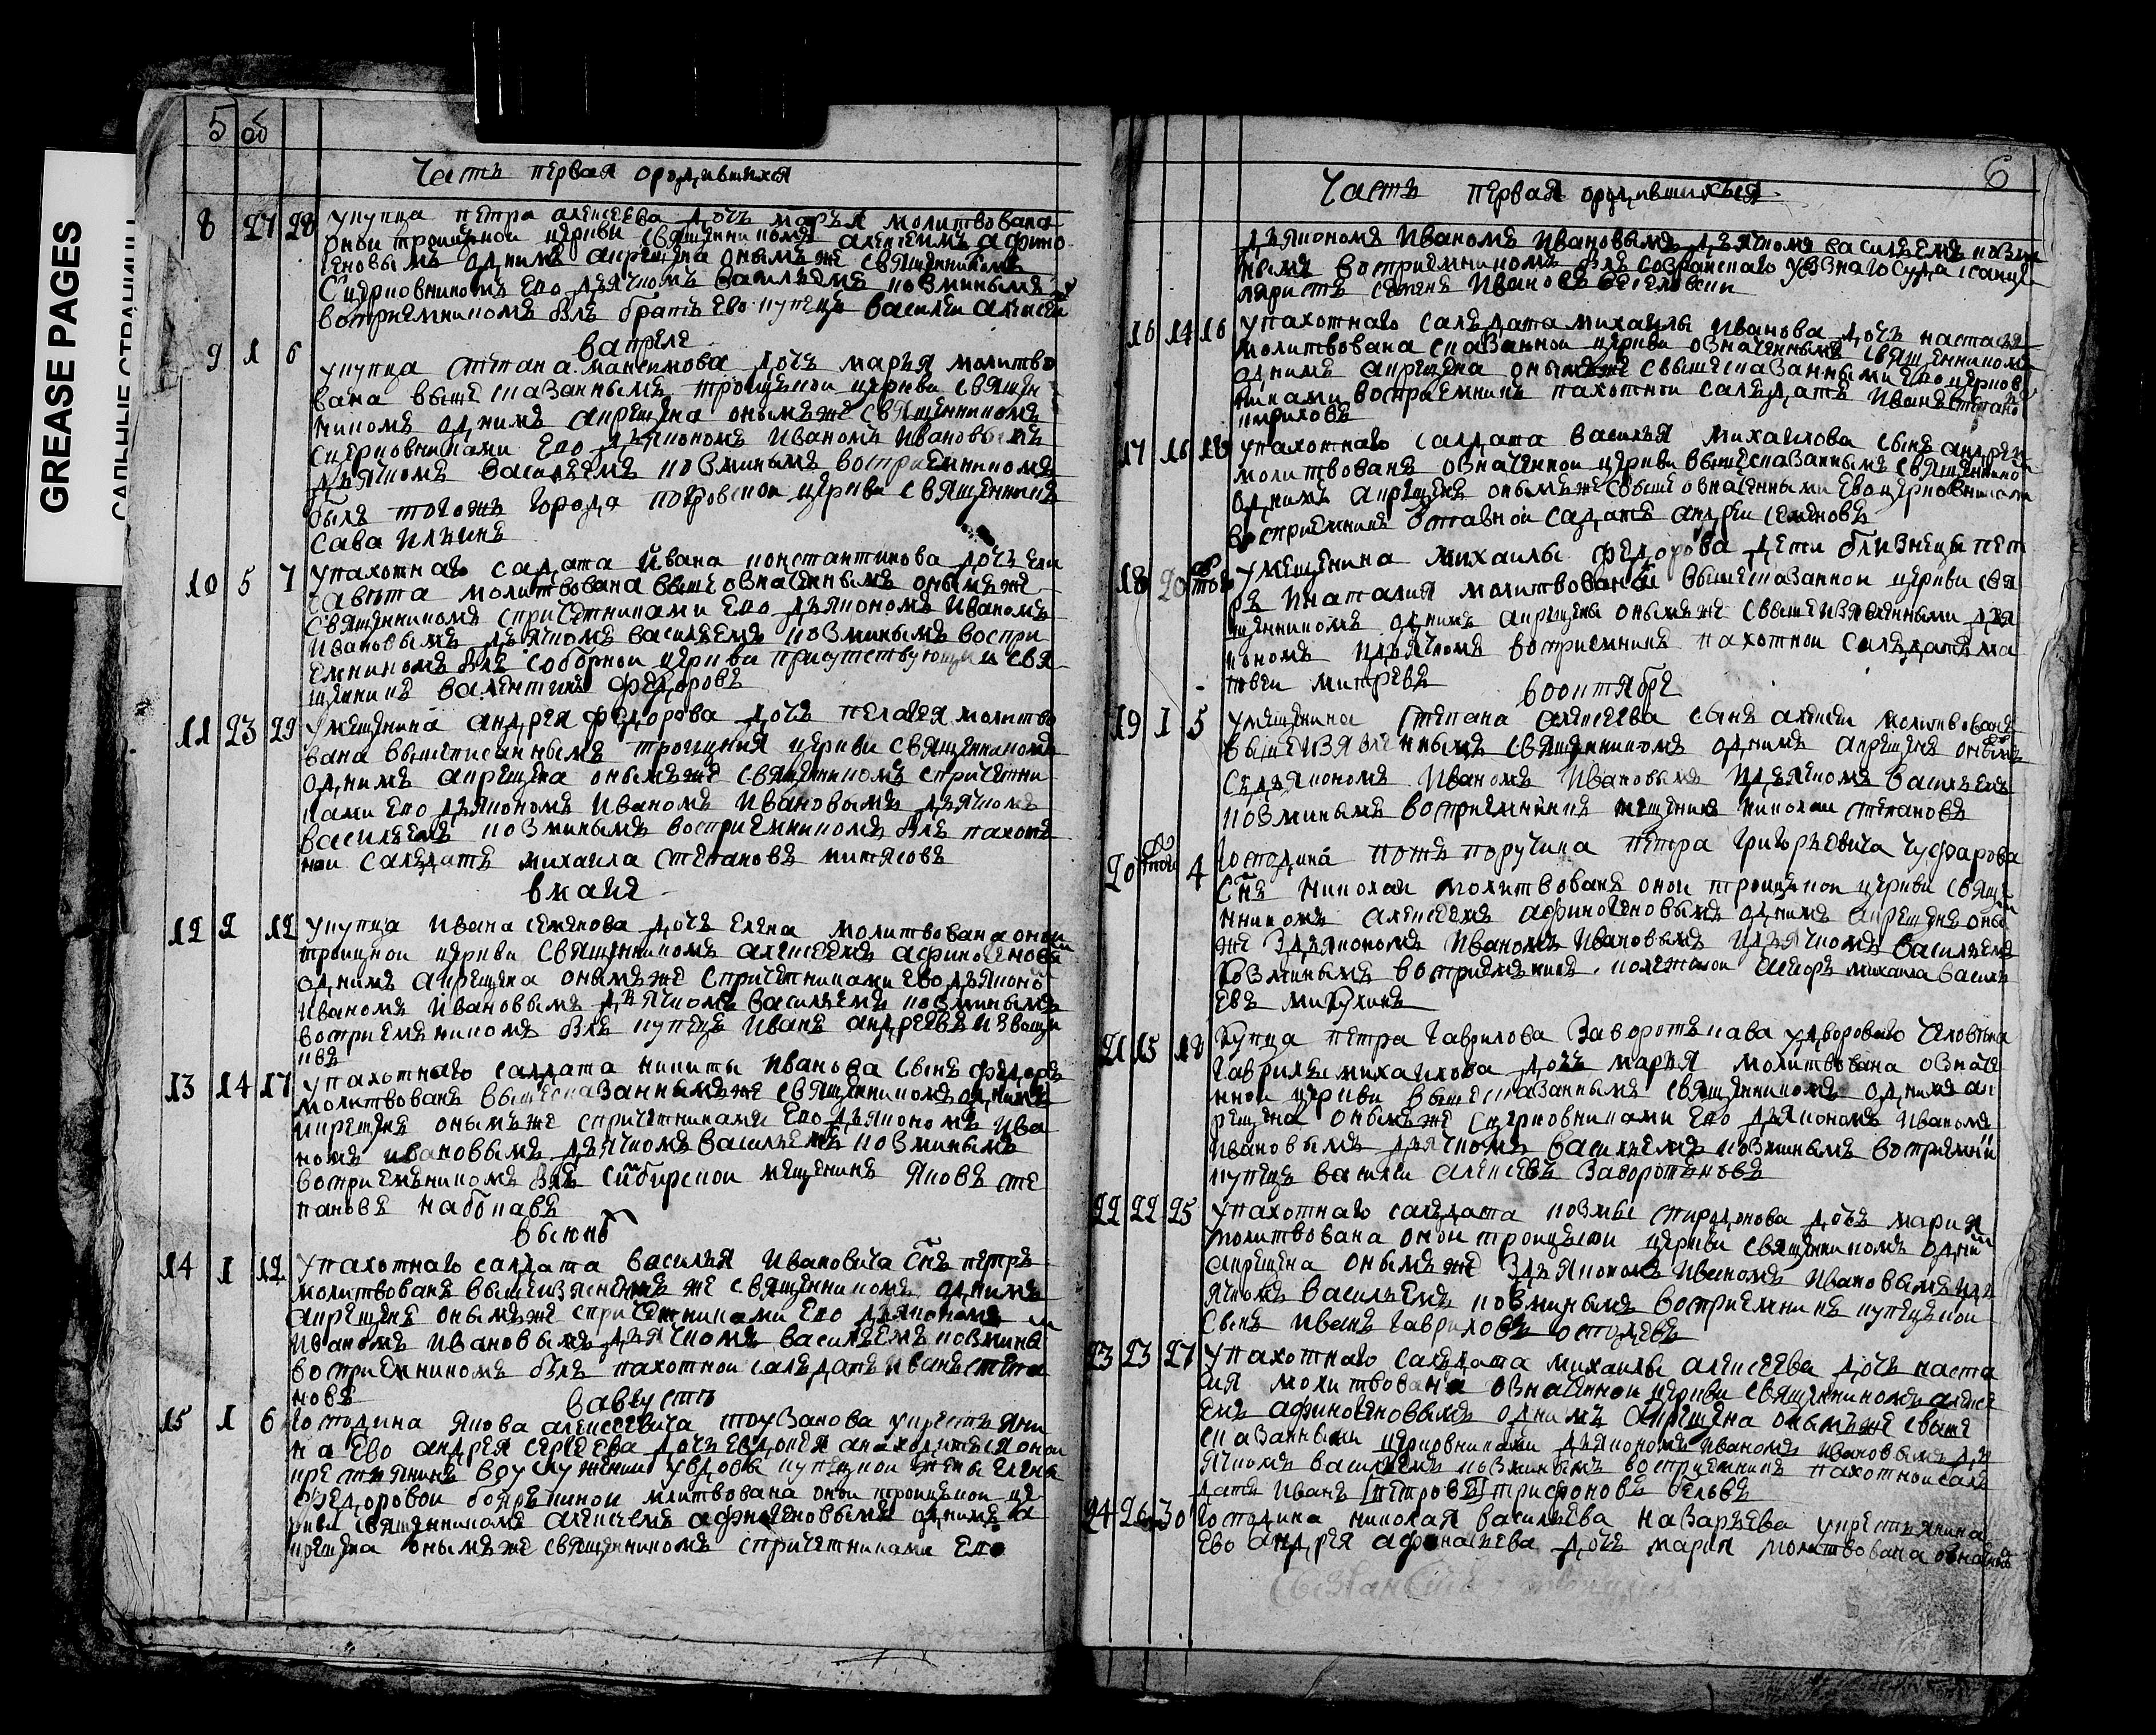 GREASE PAGES
5 об
Часть первая ородившихся
8 27 28 укупца петра алексеева дочь марья молитвована
оной троицкой церкви священникомъ алексеимъ афино
геновымъ однимъ акрещена онымъ же священникомъ
сцерковникомъ ево дьячкомъ васильемъ козминымъ
восприемникомъ былъ братъ ево купецъ василей алексеи
вапреле
9 1 6 укупца степана максимова дочь марья молитво
вана вышесказаннымъ троицкой церкви священ
никомъ однимъ акрещена онымъ же священникомъ
сцерковниками ево дьякономъ Иваномъ Ивановымъ
дьячкомъ васильемъ козминымъ восприемникомъ
былъ тогожъ города покровской церкви священникъ
Сава Ильинъ
10 5 7 упахотнаго салдата Ивана константинова дочь ели
савета молитвована вышеозначеннымъ онымъ же
священникомъ спричетниками ево дьякономъ Иваномъ
Ивановымъ дьячкомъ васильемъ козминымъ воспри
емникомъ былъ соборной церкви присутствующий свя
щенникъ валентинъ федоровъ
11 23 29 умещенина андрея федорова дочь пелагея молитво
вана вышеписаннымъ троицкия церкви священникомъ
однимъ акрещена онымъ же священникомъ спричетни
ками ево дьякономъ Иваномъ Ивановымъ дьячкомъ
васильемъ козминымъ восприемникомъ былъ пахот
ной салдатъ михаила степановъ митясовъ
вмаие
12 2 12 укупца Ивана семенова дочь елена молитвована оной
троицкой церкви священникомъ алексеемъ афиногеновы
однимъ акрещена онымъ же спричетниками ево дьяконо
Иваномъ Ивановымъ дьячкомъ васильемъ козминымъ
восприемникомъ былъ купецъ Иванъ андреевъ Извощи
ковъ
13 14 17 упахотнаго салдата никиты Иванова сынъ федоръ
молитвованъ вышесказаннымъ же священникомъ однимъ
икрещенъ онымъ же спричетниками ево дьякономъ Ива
номъ Ивановымъ дьячкомъ васильемъ козминымъ
восприемникомъ былъ синбирской мещенинъ Яковъ сте
пановъ
выюнѣ
14 1 12 упахотнаго салдата василья Ивановича снъ петръ
молитвованъ же священникомъ однимъ
акрещенъ онымъ же спричетниками ево дьякономъ
Иваномъ Ивановымъ дьячкомъ васильемъ козминым
восприемникомъ былъ пахотной салдатъ Иванъ степа
новъ
вавгусте
15 1 6 Господина Якова алексеевича уврестьяни
на ево андрея сергеева дочь евдокея анаходится оной
крестьянинъ вруслужении увдовы купецкой жены елены
федоровой молитвована оной троицкой це
ркви священникомъ алексеемъ афиногеновымъ однимъ а
крещена онымъ же священникомъ спричетниками ево
6
Часть первая ородившихся
дьякономъ Иваномъ Ивановымъ дьячкомъ васильемъ козми
нымъ восприемникомъ былъ уезнаго суда канце
ляристъ семенъ Ивановъ
16 14 16 упахотнаго салдата михаилы Иванова дочь настасья
молитвована сказанной церкви означеннымъ священникомъ
однимъ акрещена онымъ же свышесказанными ево церков
никами восприемникъ пахотной салдатъ Иванъ степано
17 16 18 упахотнаго салдата василья михаилова сынъ андреи
молитвованъ означенной церкви вышесказаннымъ священнико
однимъ акрещенъ онымъ же свышеозначенными ево церковниками
восприемникъ отставной садатъ андреи семеновъ
18 20 умещенина михаилы федорова дети близнецы пет
ръ Инаталия молитвованы вышесказанной церкви свя
щенникомъ однимъ акрещены онымъ же свышеизявленными дья
кономъ Идьячкомъ восприемникъ пахотной салдатъ ма
твеи митревъ
вооктябре
19 1 5 умещенина степана алексеева сынъ алексеи молитвованъ
вышеизявленнымъ священникомъ однимъ акрещенъ онымъ
сдьякономъ Иваномъ Ивановымъ Идьячкомъ васильемъ
козминымъ восприемникъ мещенинъ николаи степановъ
20 4 Господина потъ поручика петра Григорьевича
снъ николаи молитвованъ оной троицкой церкви свяще
нникомъ алексеемъ афиногеновымъ однимъ акрещенъ оны
же здьякономъ Иваномъ Ивановымъ Идьячкомъ васильемъ
козминымъ восприемникъ михаила василь
евъ
21 15 18 Купца петра Гаврилова удвороваго человека
Гаврилы михаилова дочь мария молитвована означе
нной церкви вышесказаннымъ священникомъ однимъ ак
рещена онымъ же сцерковниками ево дьякономъ Иваномъ
Ивановымъ дьячкомъ васильемъ козминымъ восприемни
купецъ василеи алексеевъ
22 22 25 упахотнаго салдата козмы спиридонова дочь мария
молитвована оной троицкой церкви священникомъ одним
акрещена онымъ же здьякономъ Иваномъ Ивановымъ Идь
ячкомъ васильемъ козминымъ восприемникъ купецкой
сынъ Иванъ Гавриловъ
23 23 27 упахотнаго салдата михаилы алексеева дочь наста
сия молитвована означенной церкви священникомъ алексе
емъ афиногеновымъ однимъ акрещена онымъ же свыше
сказанными церковниками дьякономъ Иваномъ Ивановымъ дь
ячкомъ васильемъ козминымъ восприемникъ пахотной сал
датъ Иванъ [петровъ] трифоновъ
24 26 30 Господина николая васильева назарьева укрестьянина
ево андрея афонасьева дочь мария молитвована